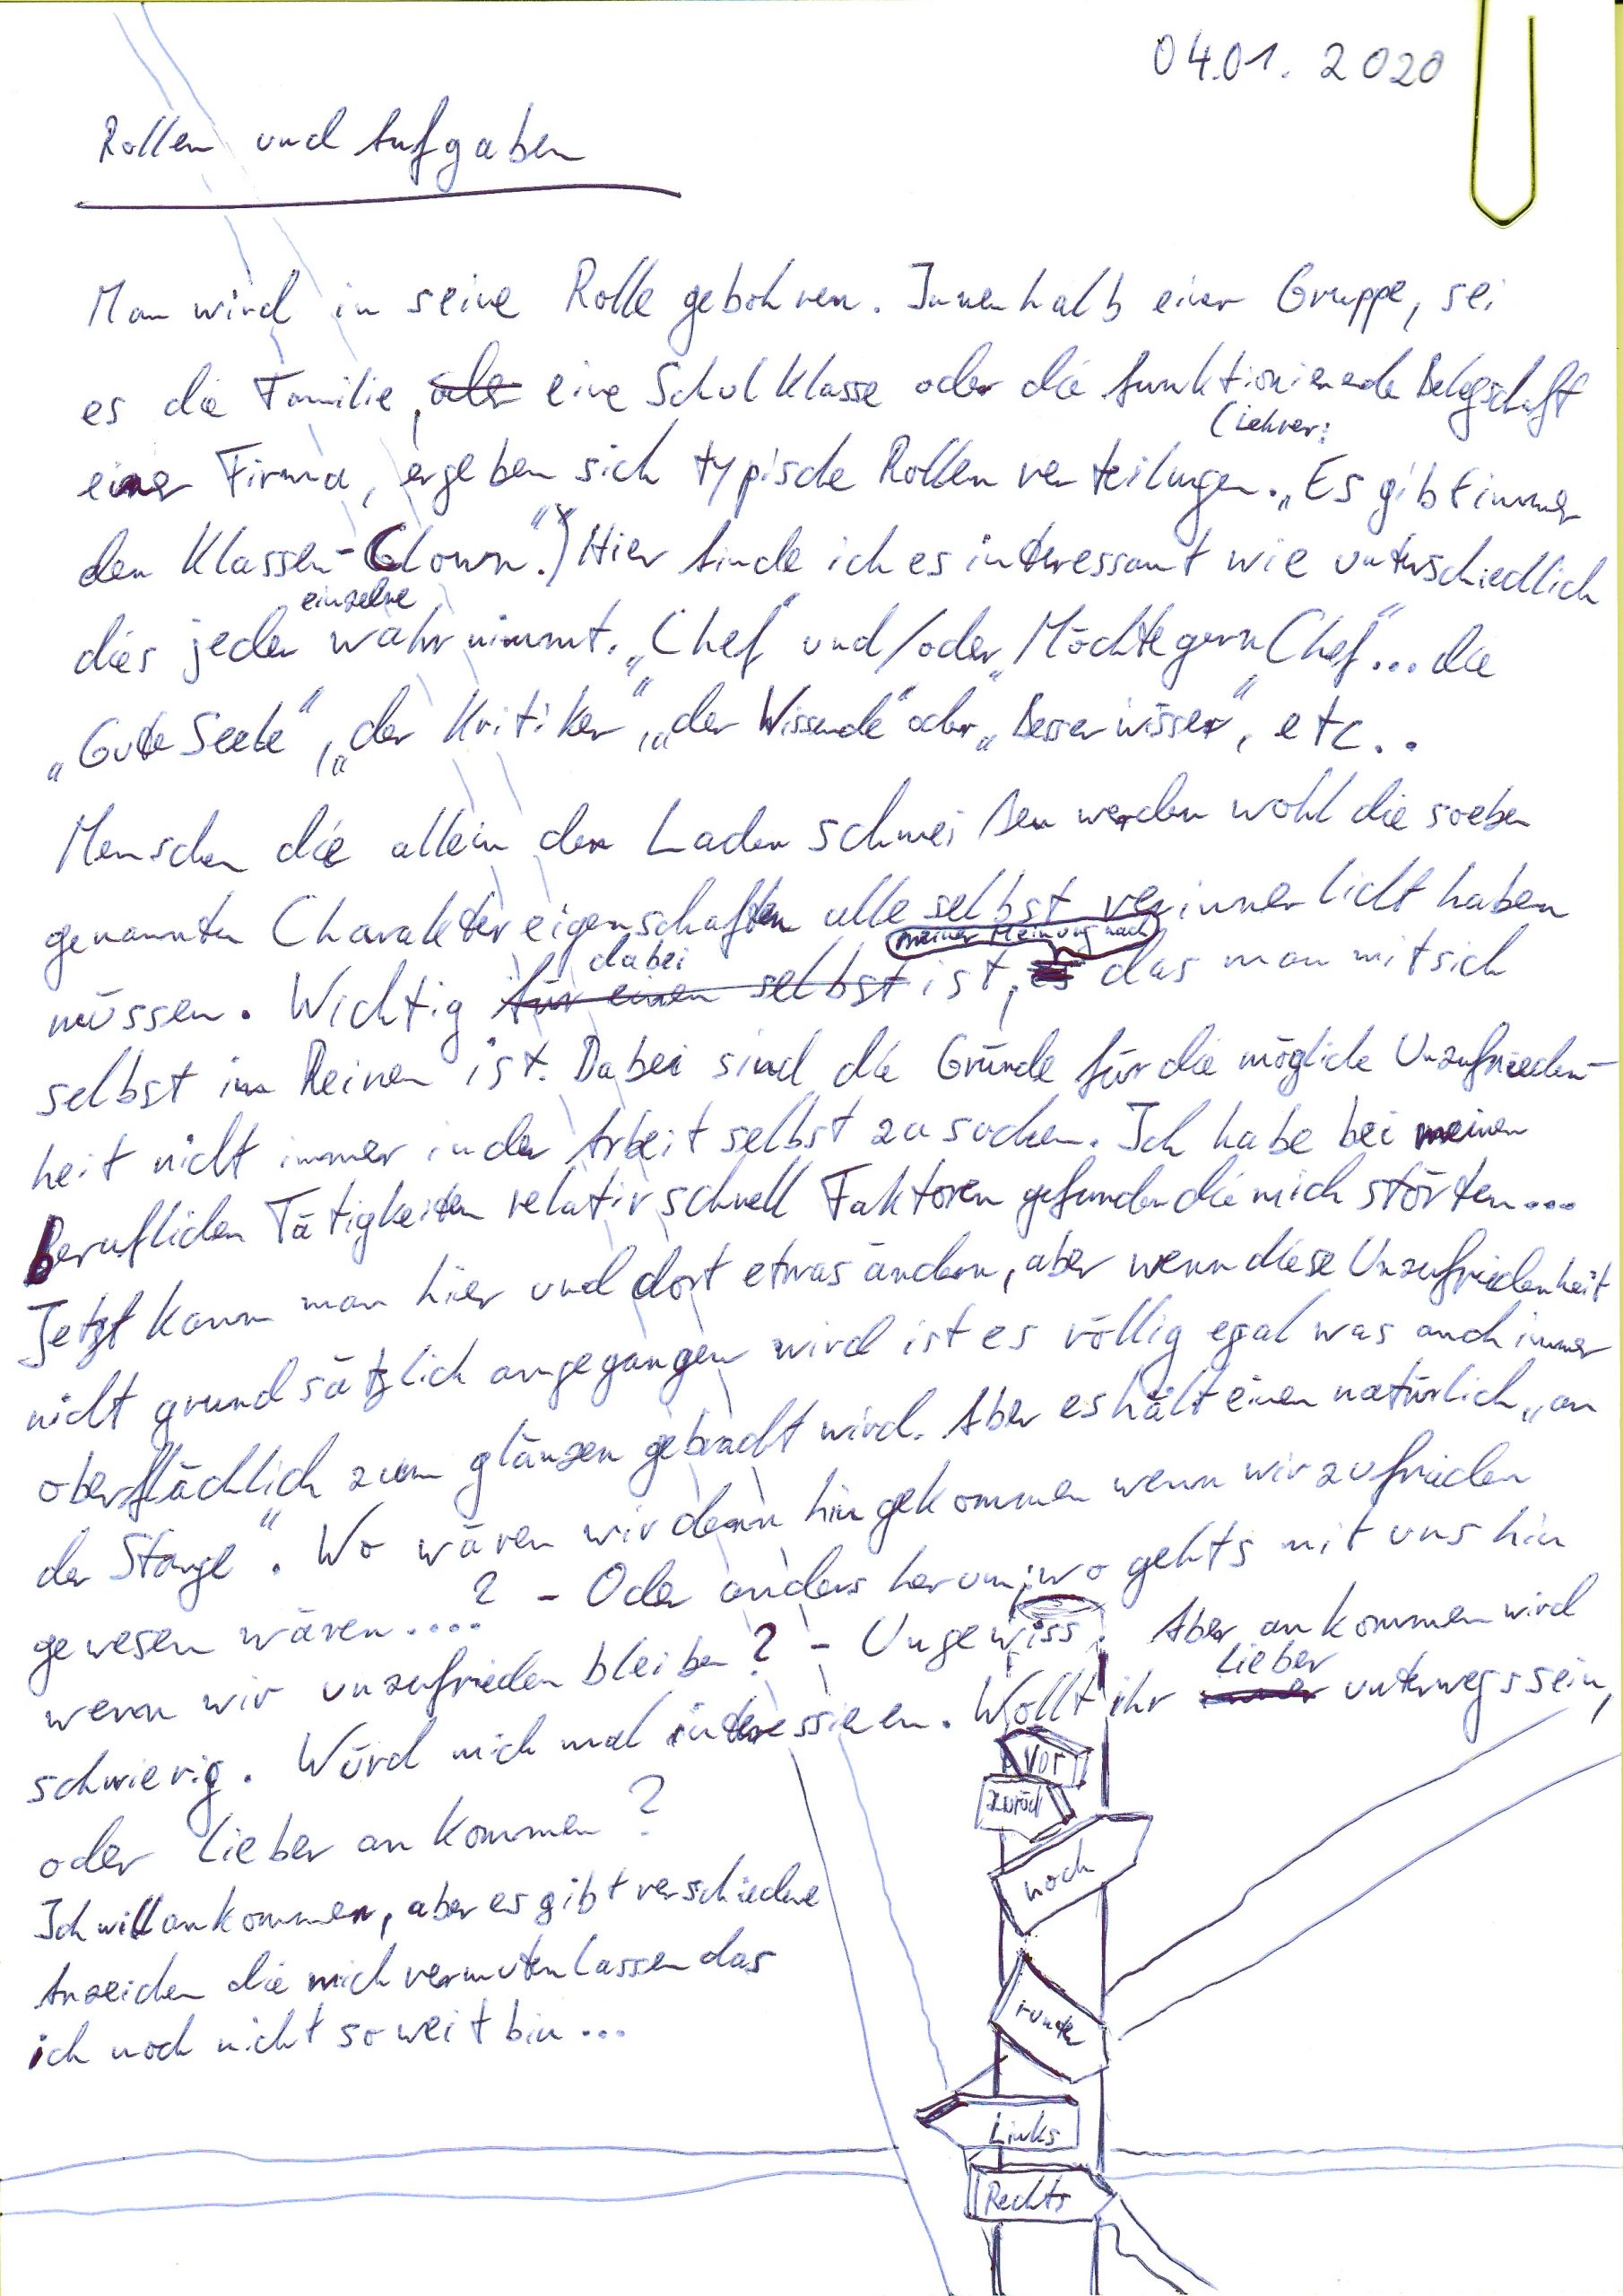 04.01.2020
Rollen und Aufgaben
Man wird in seine Rolle gebohren. Innerhalb einer Gruppe, sei
es die Familie, oder eine Schulklasse oder die funktionierende Belegschaft
(Lehrer:
einer Firma, ergeben sich typische Rollenverteilungen. „Es gibt immer
den Klassen-Clown“.) Hier finde ich es interessant wie unterschiedlich
einzelne
dies jeder wahrnimmt. „Chef“ und/oder „Möchtegern Chef“... die
„Gute Seele“, „der Kritiker“, „der Wissende“ oder „Besserwisser“, etc..
Menschen die allein den Laden schmeißen werden wohl die soeben
genannten Charaktereigenschaften alle selbst verinnerlicht haben
meiner Meinung nach
dabei
müssen. Wichtig für einen selbst ist, es das man mit sich
selbst im Reinen ist. Dabei sind die Gründe für die mögliche Unzufrieden-
heit nicht immer in der Arbeit selbst zu suchen. Ich habe bei meinen
beruflichen Tätigkeiten relativ schnell Faktoren gefunden die mich störten...
Jetzt kann man hier und dort etwas ändern, aber wenn diese Unzufriedenheit
nicht grundsätzlich angegangen wird ist es völlig egal was auch immer
oberflächlich zum glänzen gebracht wird. Aber es hält einen natürlich „an
der Stange“. Wo wären wir denn hingekommen wenn wir zufrieden
gewesen wären....? - Oder anders herum; wo gehts mit uns hin
wenn wir unzufrieden bleiben? - Ungewiss. Aber ankommen wird
lieber
schwierig. Würd mich mal interessieren. Wollt ihr immer unterwegs sein,
oder lieber ankommen?
Ich will ankommen, aber es gibt verschiedne
Anzeichen die mich vermuten lassen das
ich noch nicht soweit bin...
vor
zurück
hoch
runter
Links
Rechts